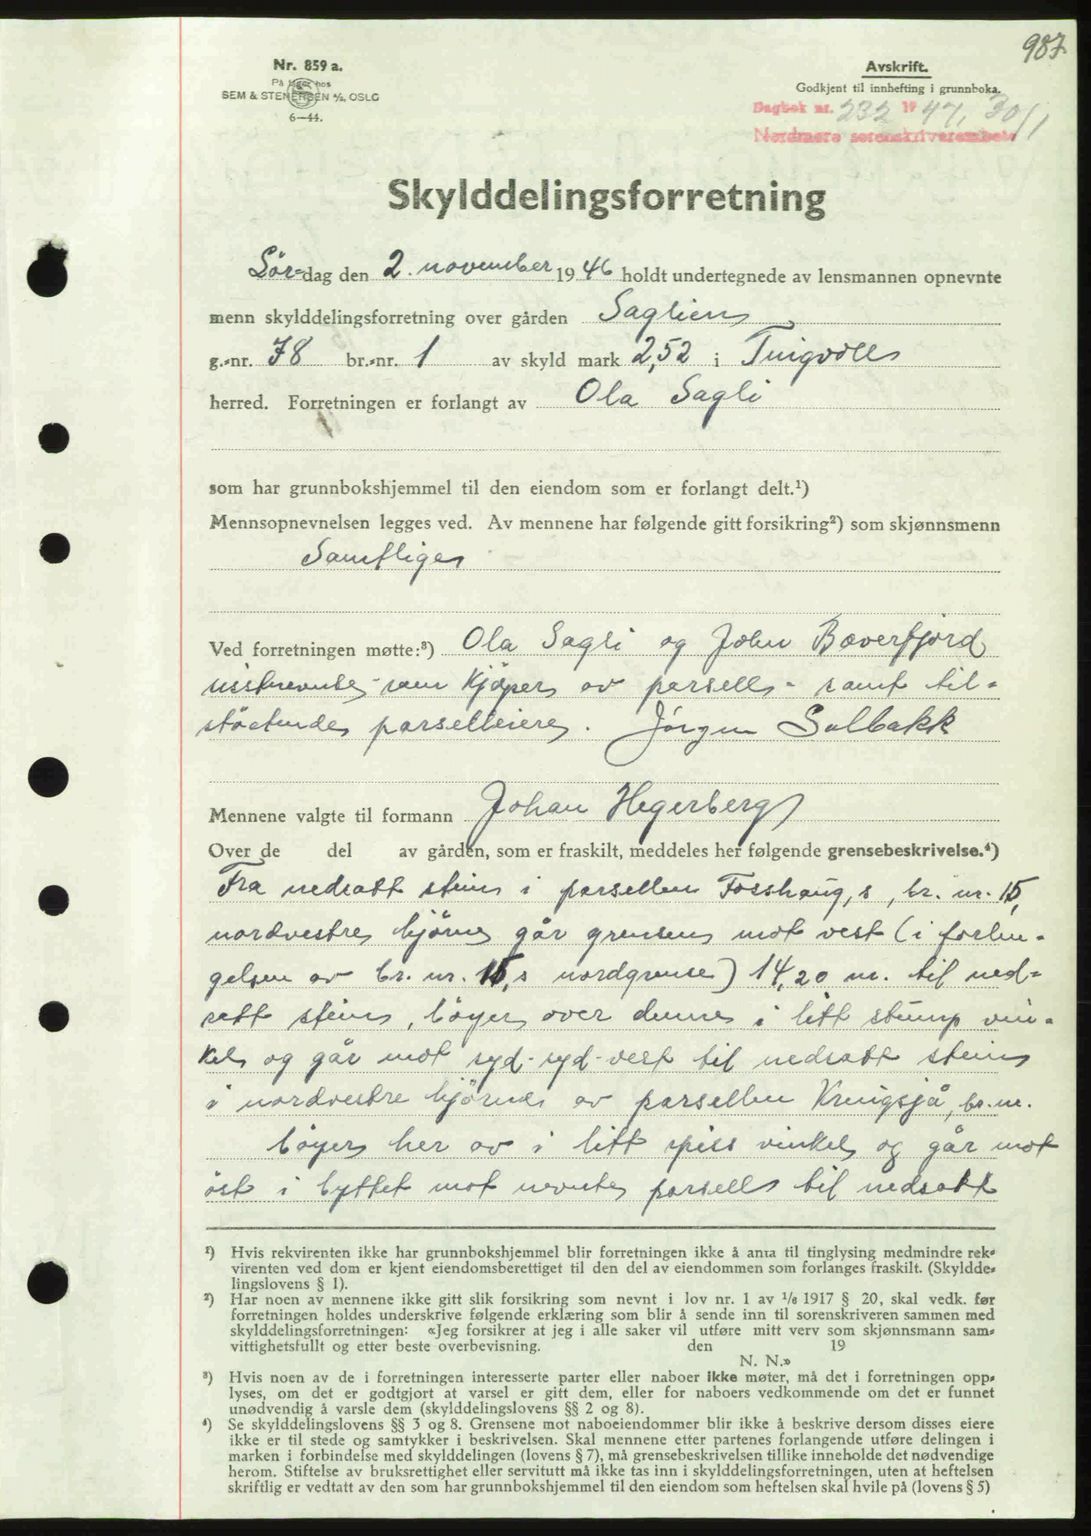 987
Nr. 859 a.
På lager hos
SEM & STENERSEN A/S, OSLO
6—44.
Avskrift.
Godkjent til innhefting i grunnboka.
Dagbok nr. 232 19 47, 30/1
Nordmøre sorenskriverembete
Skylddelingsforretning
Lör-dag den 2. november 19 46 holdt undertegnede av lensmannen opnevnte
menn skylddelingsforretning over gården Saglien
g.-nr. 78 br.-nr. 1 av skyld mark 2,52 i Tingvoll
herred. Forretningen er forlangt av Ola Sagli
som har grunnbokshjemmel til den eiendom som er forlangt delt.¹)
Mennsopnevnelsen legges ved. Av mennene har følgende gitt forsikring²) som skjønnsmenn
Samtlige
Ved forretningen møtte:³) Ola Sagli og John Bæverfjord
sistnevnte som kjöper av parsell - samt til-
stöetende parselleiere. Jörgen Solbakk
Mennene valgte til formann Johan Hegerberg
Over de del av gården, som er fraskilt, meddeles her følgende grensebeskrivelse.⁴)
Fra nedsatt stein i parsellen Fosshaug,s, br. nr. 15,
nordvestre hjörne går grensen mot vest (i forlen-
gelsen av br. nr. 15,s nordgrense) 14,20 m. til ned-
satt stein, böyer over denne i litt stump vin-
kel og går mot syd-syd-vest til nedsatt stein
i nordvestre hjörne av parsellen Kringsjå, br. nr.
böyer her av i litt spiss vinkel og går mot
öst i byttet mot nevnte parsell til nedsatt
¹) Hvis rekvirenten ikke har grunnbokshjemmel blir forretningen ikke å anta til tinglysing medmindre rek-
virenten ved dom er kjent eiendomsberettiget til den del av eiendommen som forlanges fraskilt. (Skyldde-
lingslovens § 1).
²) Har noen av mennene ikke gitt slik forsikring som nevnt i lov nr. 1 av 1/6 1917 § 20, skal vedk. før
forretningen holdes underskrive følgende erklæring som blir å sende inn til sorenskriveren sammen med
skylddelingsforretningen: «Jeg forsikrer at jeg i alle saker vil utføre mitt verv som skjønnsmann sam-
vittighetsfullt og etter beste overbevisning. den 19
N. N.»
³) Hvis noen av de i forretningen interesserte parter eller naboer ikke møter, må det i forretningen opp-
lyses, om det er godtgjort at varsel er gitt dem, eller for naboers vedkommende om det er funnet
unødvendig å varsle dem (skylddelingslovens §§ 2 og 8).
⁴) Se skylddelingslovens §§ 3 og 8. Grensene mot naboeiendommer blir ikke å beskrive dersom disses eiere
ikke er til stede og samtykker i beskrivelsen. Skal mennene etter partenes forlangende utføre delingen i
marken i forbindelse med skylddelingen (lovens § 7), må grensebeskrivelsen tillike inneholde det nødvendige
herom. Stiftelse av bruksrettighet eller servitutt må ikke tas inn i skylddelingsforretningen, uten at heftelsen
skriftlig er vedtatt av den som har grunnbokshjemmel til den eiendom som heftelsen skal hvile på (lovens § 5)